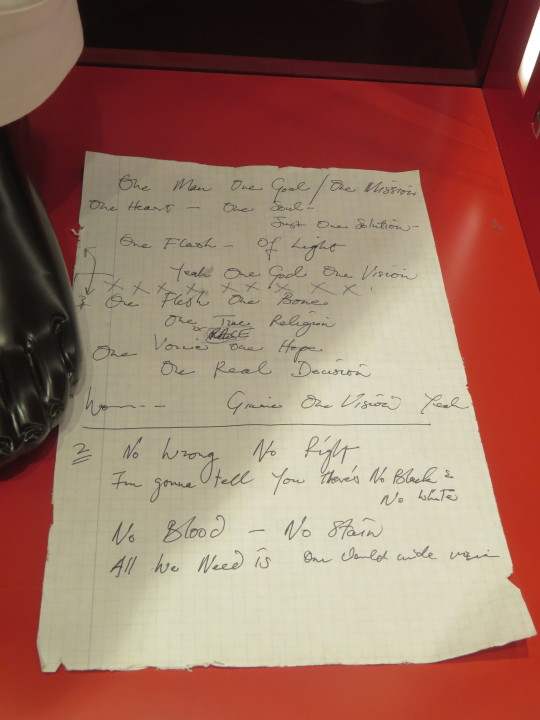 One Man One Goal / One Mission
One Heart – One Soul –
Just One Solution –
One Flash – Of Light
Yeah One God One Vision
X X X X X X X X X X
One Flesh One Bone
One True Religion
or RACE
One Voice One Hope
One Real Decision
Gimme One Vision Yeah
2 No Wrong No Right
I'm gonna tell You there's No Black &
No White
No Blood – No Stain
All We Need is One World wide vision